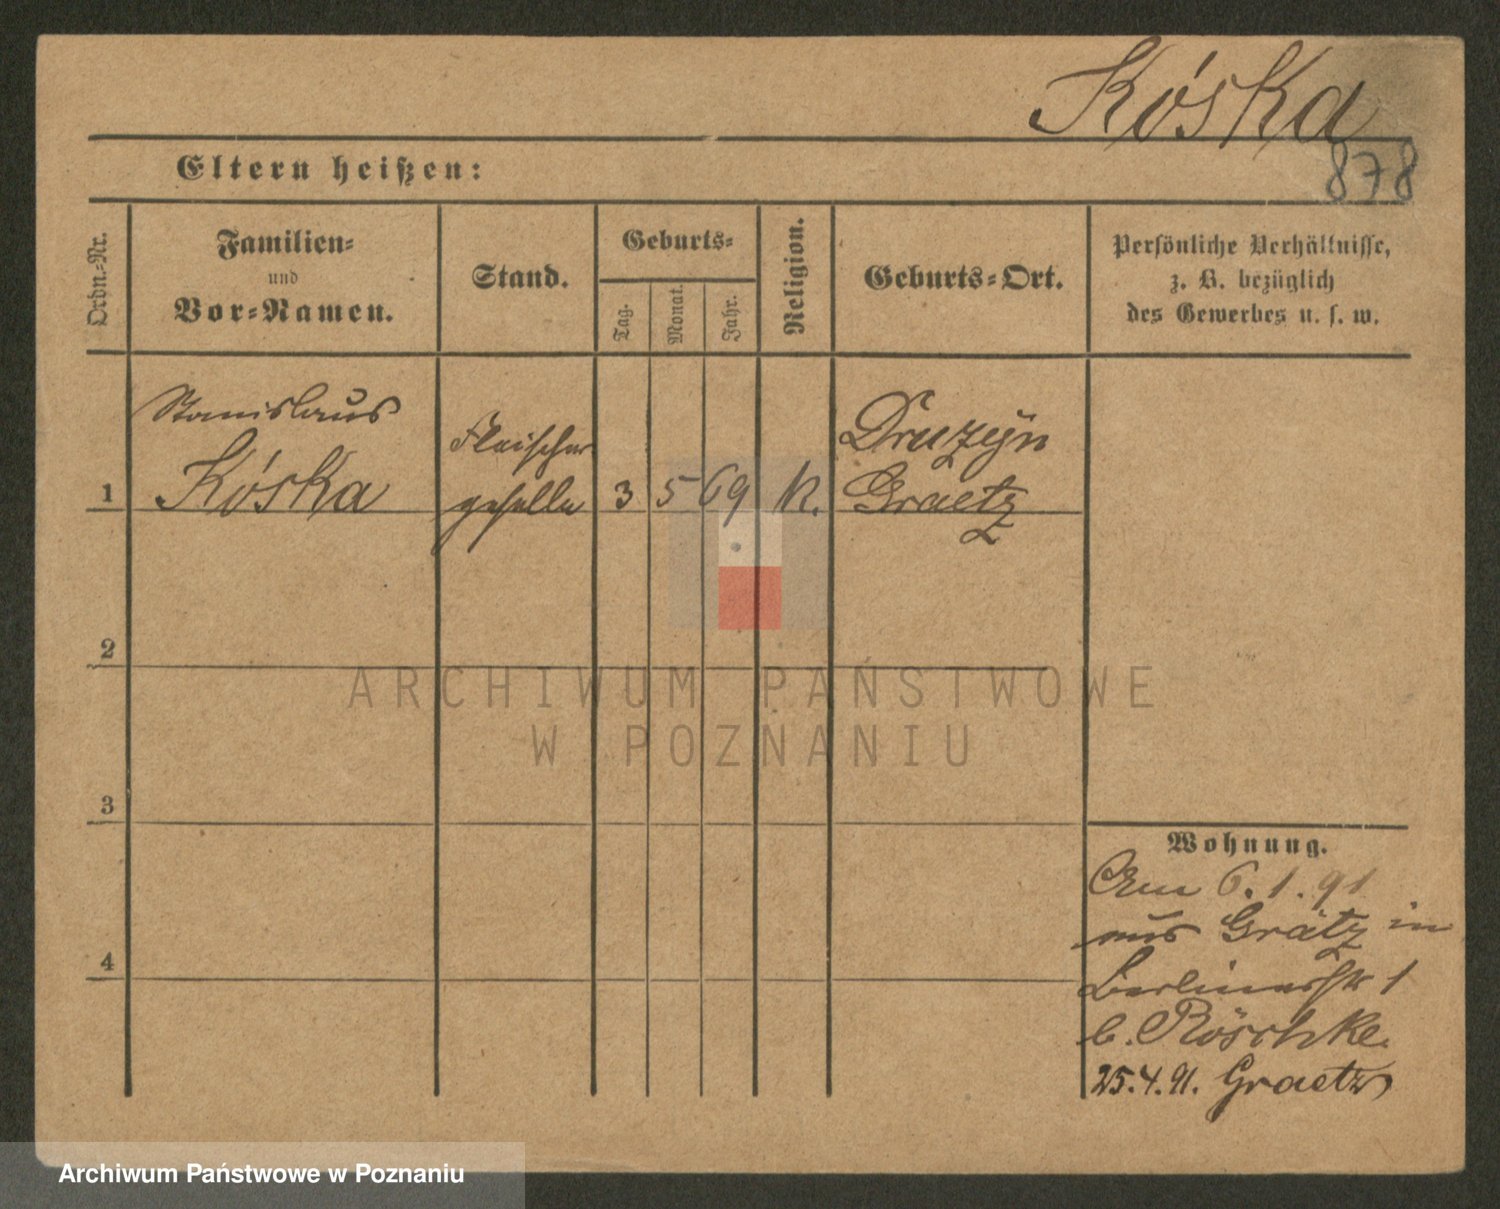 Kóska
Eltern heißen:
878
Ordn.-Nr.
Familien-
und
Vor-Namen.
Stand.
Geburts-
Tag.
Monat.
Jahr.
Religion.
Geburts-Ort.
Persönliche Verhältnisse,
z. B. bezüglich
des Gewerbes u. s. w.
1
Stanislaus
Kóska
Fleischer
geselle
3
5
69
K.
Druzyn
Graetz
2
3
4
Wohnung.
Am 6.1.91
aus Grätz in
Berlinerstr 1
b. Röschke.
25.4.91. Graetz
ARCHIWUM PAŃSTWOWE
W POZNANIU
Archiwum Państwowe w Poznaniu